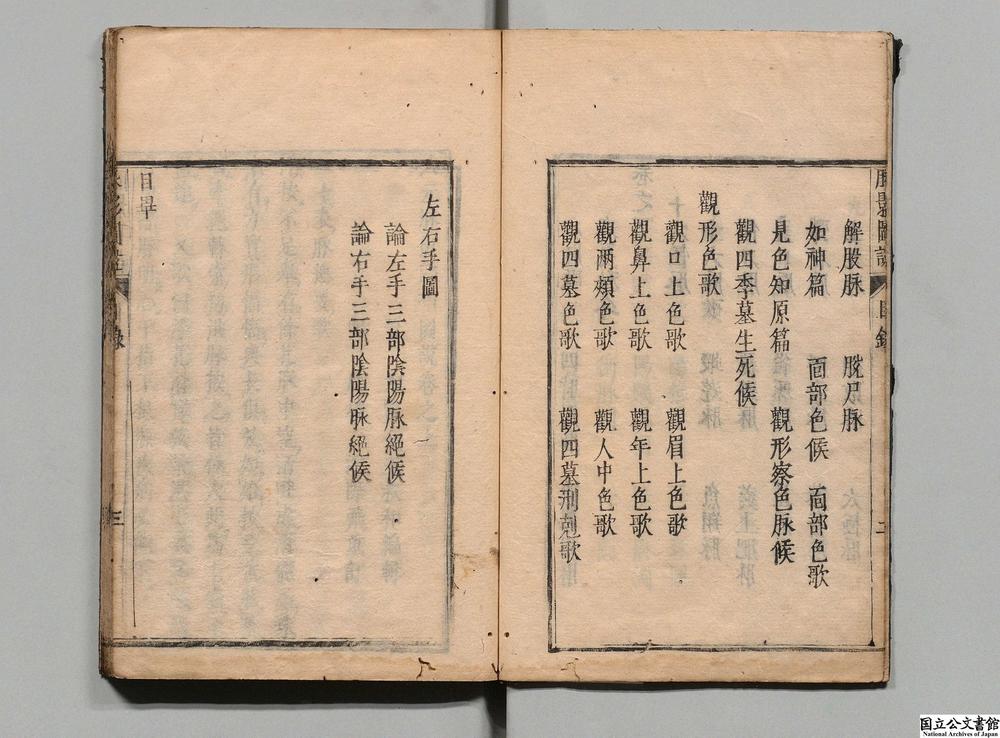 脉影圖說 目錄 二
解股脉 脫尺脉
如神篇 面部色候 面部色歌
見色知原篇 觀形察色脉候
觀四季墓生死候
觀形色歌
觀口上色歌 觀眉上色歌
觀鼻上色歌 觀年上色歌
觀兩頰色歌 觀人中色歌
觀四墓色歌 觀四墓刑剋歌
左右手圖
論左手三部陰陽脉絕候
論右手三部陰陽脉絕候
目畢
目錄 三
国立公文書館
National Archives of Japan